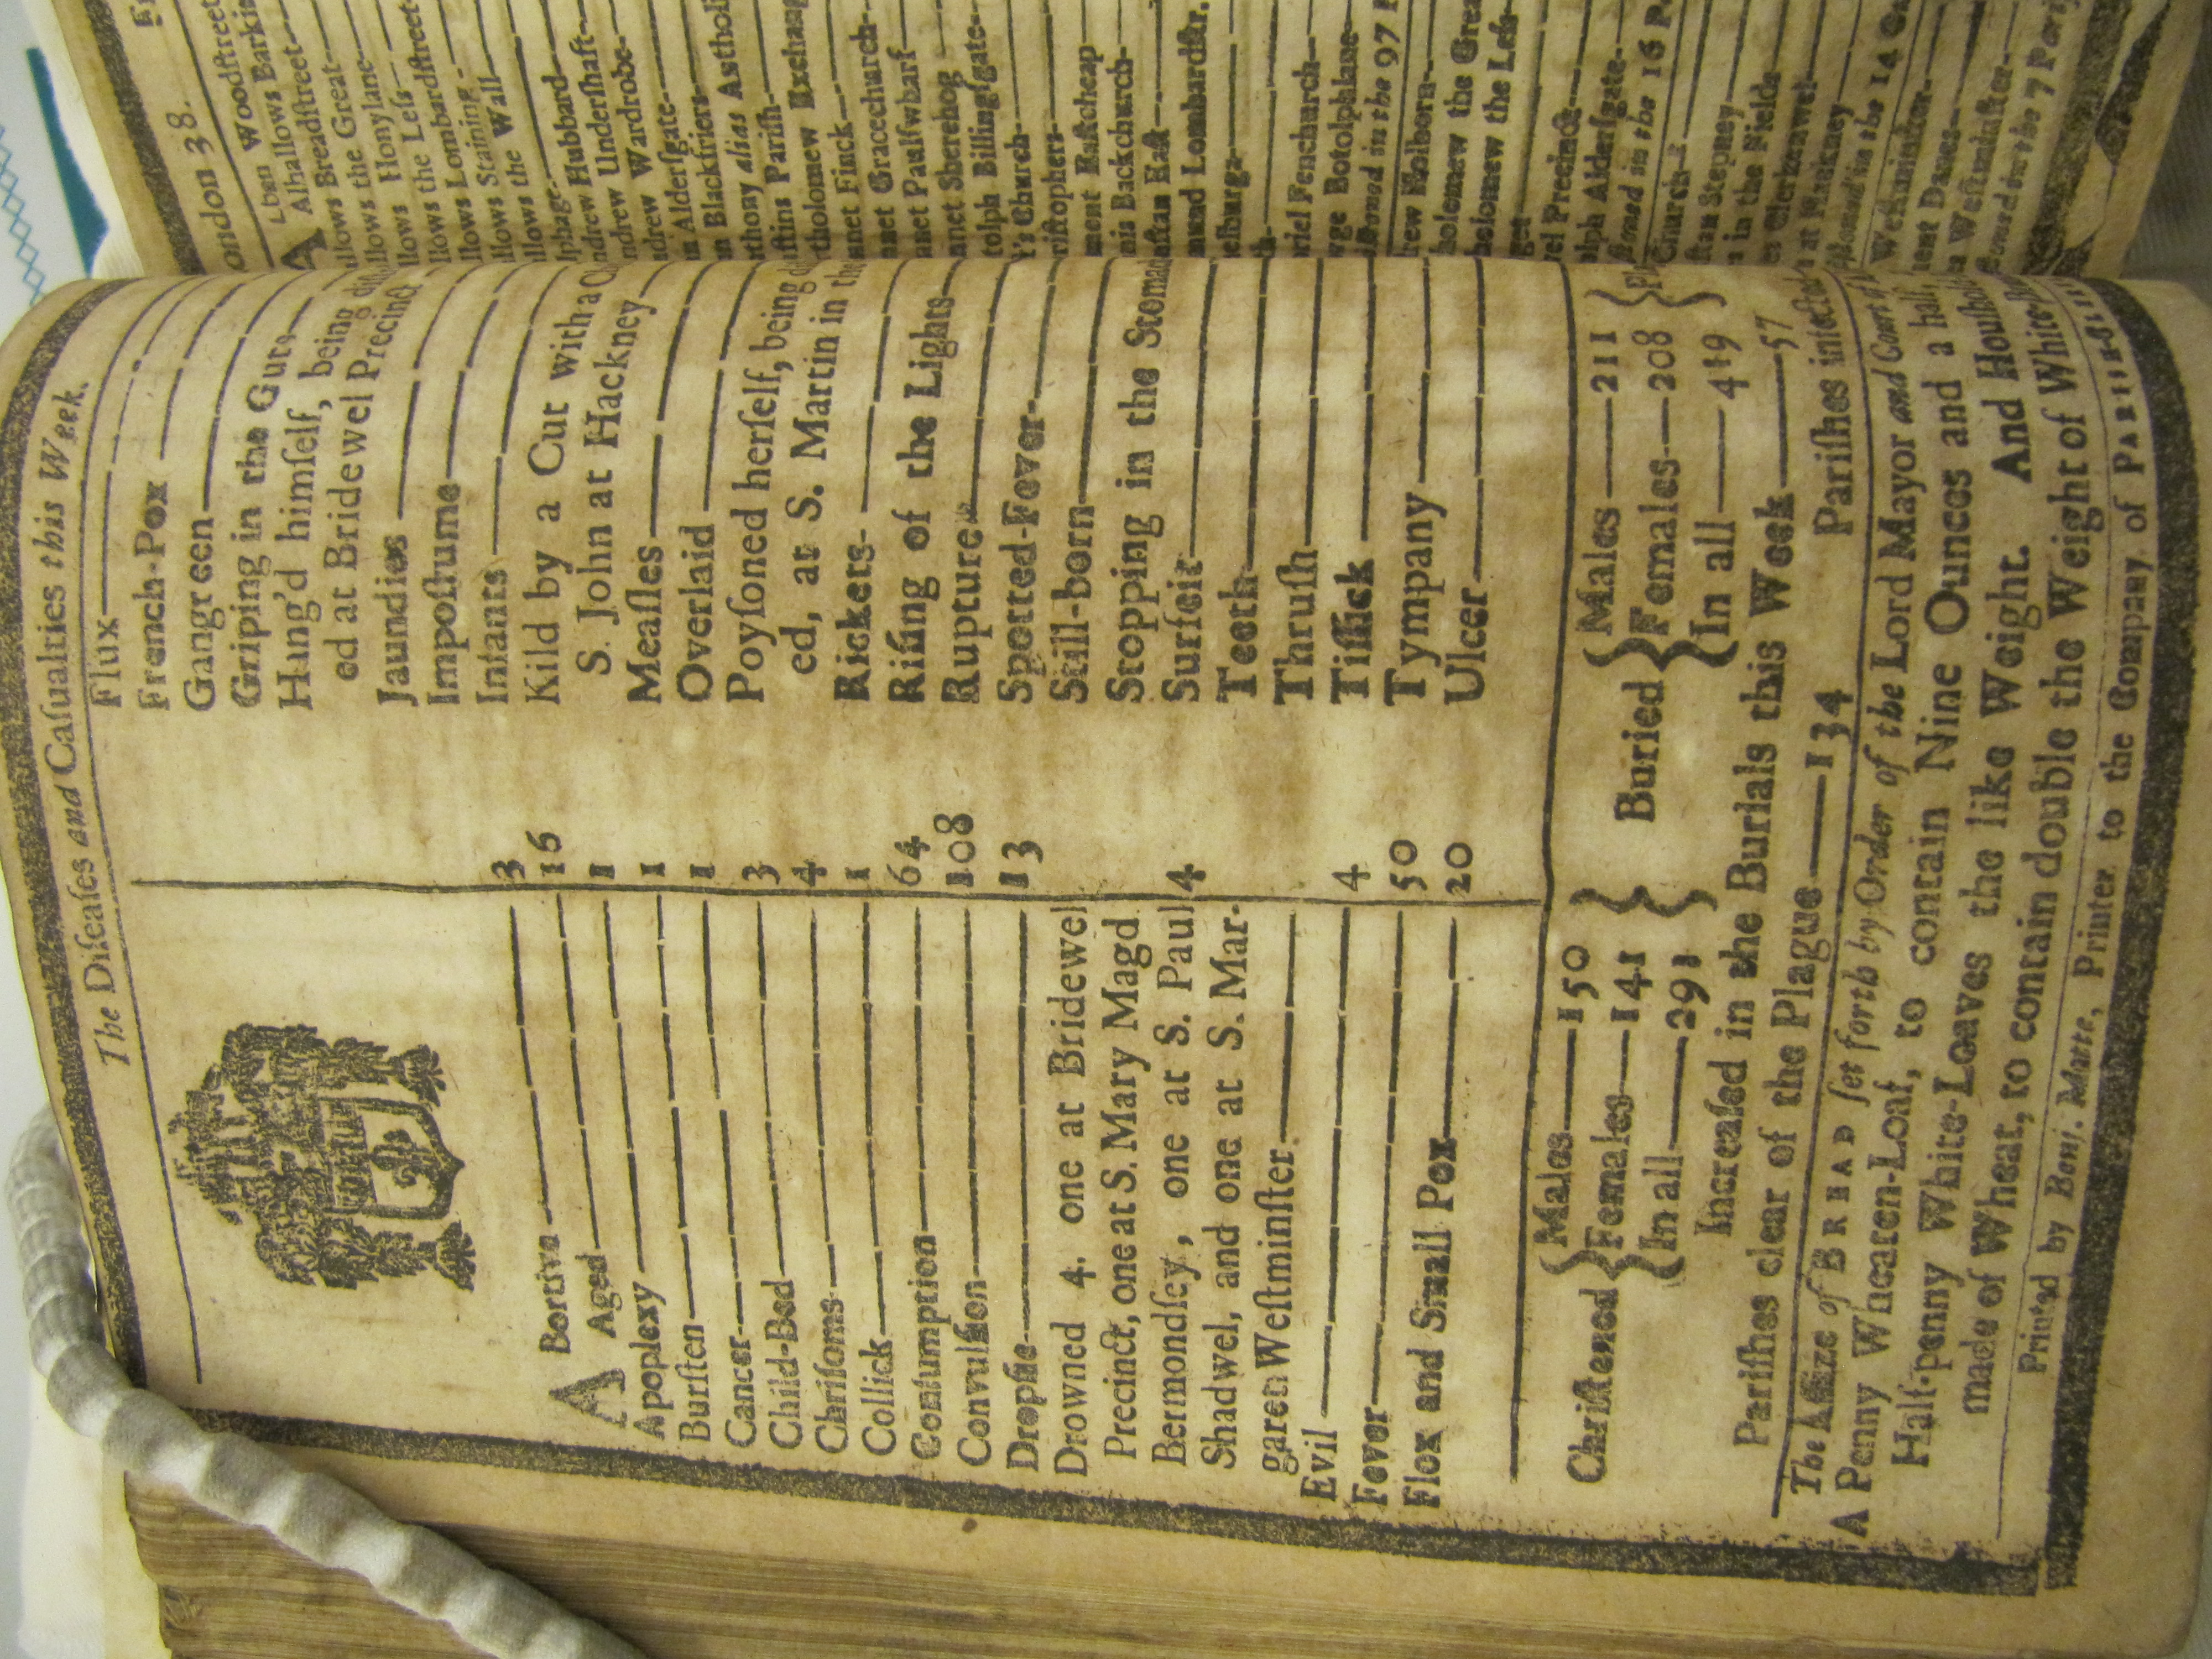 The Diſeaſes and Caſualties this Week.
A Bortive 3
Aged 16
Apoplexy 1
Burſten 1
Cancer 1
Child-Bed 3
Chriſoms 4
Collick 1
Conſumption 64
Convulſion 108
Dropſie 13
Drowned 4. one at Bridewel
Precinct, one at S. Mary Magd
Bermondſey, one at S. Paul 4
Shadwel, and one at S. Mar-
garen Weſtminſter
Evil 4
Fever 50
Flox and Small Pox 20
Flux
French-Pox
Gangreen
Griping in the Guts
Hang'd himſelf, being
ed at Bridewel Precinct
Jaundies
Impoſtume
Infants
Kild by a Cut with a
S. John at Hackney
Meaſles
Overlaid
Poyſoned herſelf, being
ed, at S. Martin in the
Rickets
Riſing of the Lights
Rupture
Spotted-Fever
Still-born
Stopping in the Stomac
Surfeit
Teeth
Thruſh
Tiſſick
Tympany
Ulcer
Chriſtened { Males 150 Females 141 In all 291 }
Buried { Males 211 Females 208 In all 419 }
Increaſed in the Burials this Week 57
Pariſhes clear of the Plague 134 Pariſhes infected
The Aſſize of BREAD ſet forth by Order of the Lord Mayor and Court of
A Penny Wheaten-Loaf, to contain Nine Ounces and a half,
Half-penny White-Loaves the like Weight. And Houſhold
made of Wheat, to contain double the Weight of White
Printed by Benj. Motte, Printer to the Company of PARISH-
London 38.
ALban Woodſtreet
Alhallows Barkin
llows Breadſtreet
llows the Great
llows Honylane
llows the Leſs
llows Lombardſtreet
llows Staining
llows the Wall
lphage
ndrew Hubbard
ndrew Underſhaft
ndrew Wardrobe
n Alderſgate
n Blackfriers
nthony alias Antholi
uſtins Pariſh
rtholomew Exchang
nnet Finck
nnet Gracechurch
nnet Paulſwharf
nnet Sherehog
tolph Billingſgate
t's Church
riſtophers
ment Eaſtcheap
nis Backchurch
nſtan Eaſt
mund Lombardſtr.
elburg
riel Fenchurch
rge Botolphlane
in the 97
rew Holborn
holomew the Grea
holomew the Leſs
get
vel Precinct
olph Alderſgate
in the 16
ſtan Stepney
in the Fields
es Clerkenwel
at Hackney
in the 14
Weſtminſter
ment Danes
Weſtminſter
in the 7